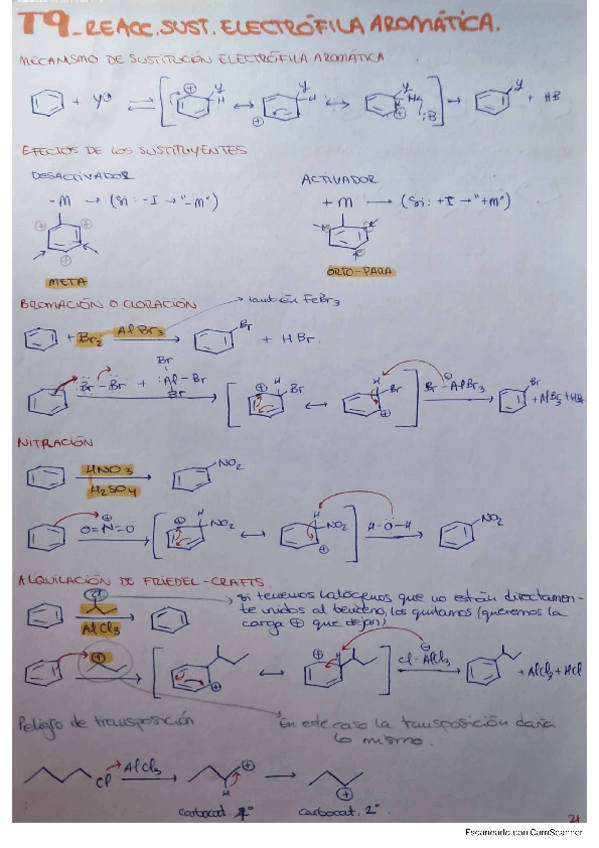 T9_REACC. SUST. ELECTRÓFILA AROMÁTICA.
MECANISMO DE SUSTITUCIÓN ELECTRÓFILA AROMÁTICA
+ Y⊕ ⇌ [ ⊕ Y H ↔ ⊕ Y H ↔ Y H ⊕ :B ] → Y + HB
EFECTOS DE LOS SUSTITUYENTES
DESACTIVADOR ACTIVADOR
-M → (Si: -I → "-M") +M → (Si: +I → "+M")
⊕ ⊕ ⊕
META ORTO-PARA
BROMACIÓN O CLORACIÓN → también FeBr3
+ Br2 AlBr3 → Br + HBr.
Br-Br + Br Al-Br Br → [ ⊕ H Br ↔ H Br ⊕ ] Br-AlBr3 → Br + AlBr3 + HBr
NITRACIÓN
HNO3 H2SO4 → NO2
O=N=O ⊕ → [ ⊕ H NO2 ↔ H NO2 ⊕ ] H-O-H → NO2
ALQUILACIÓN DE FRIEDEL-CRAFTS
Cl → si tenemos halógenos que no están directamen-
AlCl3 te unidos al benceno, los quitamos (queremos la
carga ⊕ que dejan)
⊕ → [ ⊕ ↔ ⊕ H ] Cl-AlCl3 ⊖ → + AlCl3 + HCl
Peligro de transposición En este caso la transposición daría
lo mismo.
Cl AlCl3 → ⊕ H → ⊕
carbocat. 1º carbocat. 2º
21
Escaneado con CamScanner